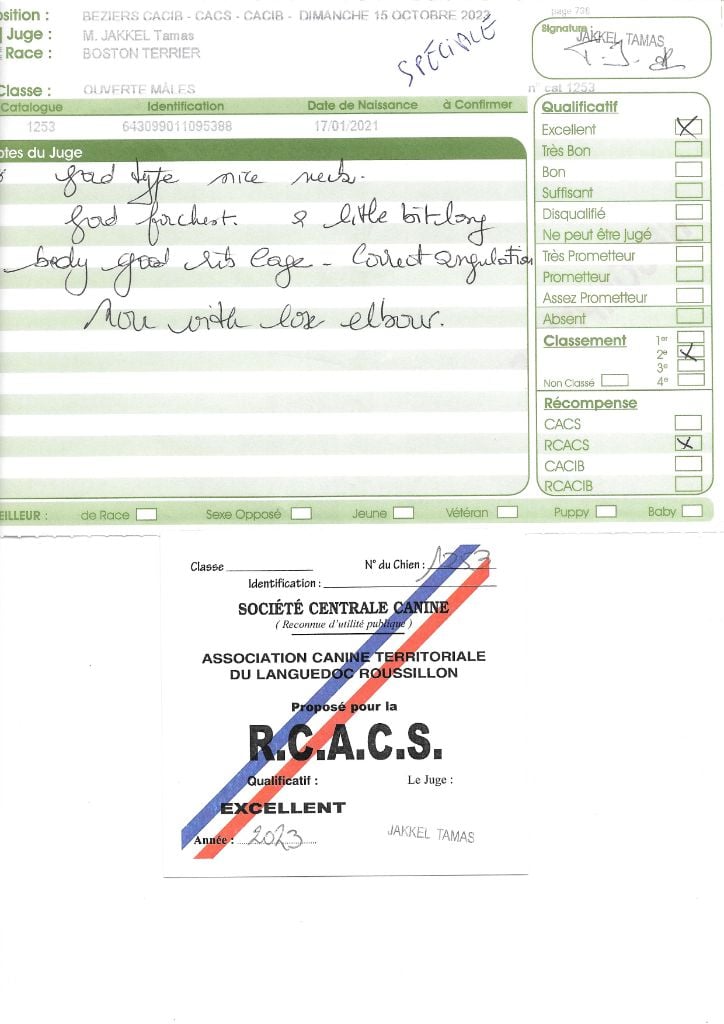 osition : BEZIERS CACIB - CACS - CACIB - DIMANCHE 15 OCTOBRE 2023
page 736
Juge : M. JAKKEL Tamas
Race : BOSTON TERRIER
SPÉCIALE
Signature :
JAKKEL TAMAS
Classe : OUVERTE MÂLES
n° cat 1253
Catalogue Identification Date de Naissance à Confirmer
1253 643099011095388 17/01/2021
otes du Juge
good type nice neck.
good forchest. a little bit long
body good rib cage - Correct angulation
Mou with lose elbour.
Qualificatif
Excellent X
Très Bon
Bon
Suffisant
Disqualifié
Ne peut être jugé
Très Prometteur
Prometteur
Assez Prometteur
Absent
Classement 1er
2e X
3e
Non Classé 4e
Récompense
CACS
RCACS X
CACIB
RCACIB
EILLEUR : de Race Sexe Opposé Jeune Vétéran Puppy Baby
Classe N° du Chien : 1253
Identification :
SOCIÉTÉ CENTRALE CANINE
( Reconnue d'utilité publique )
ASSOCIATION CANINE TERRITORIALE
DU LANGUEDOC ROUSSILLON
Proposé pour la
R.C.A.C.S.
Qualificatif : Le Juge :
EXCELLENT
Année : 2023 JAKKEL TAMAS